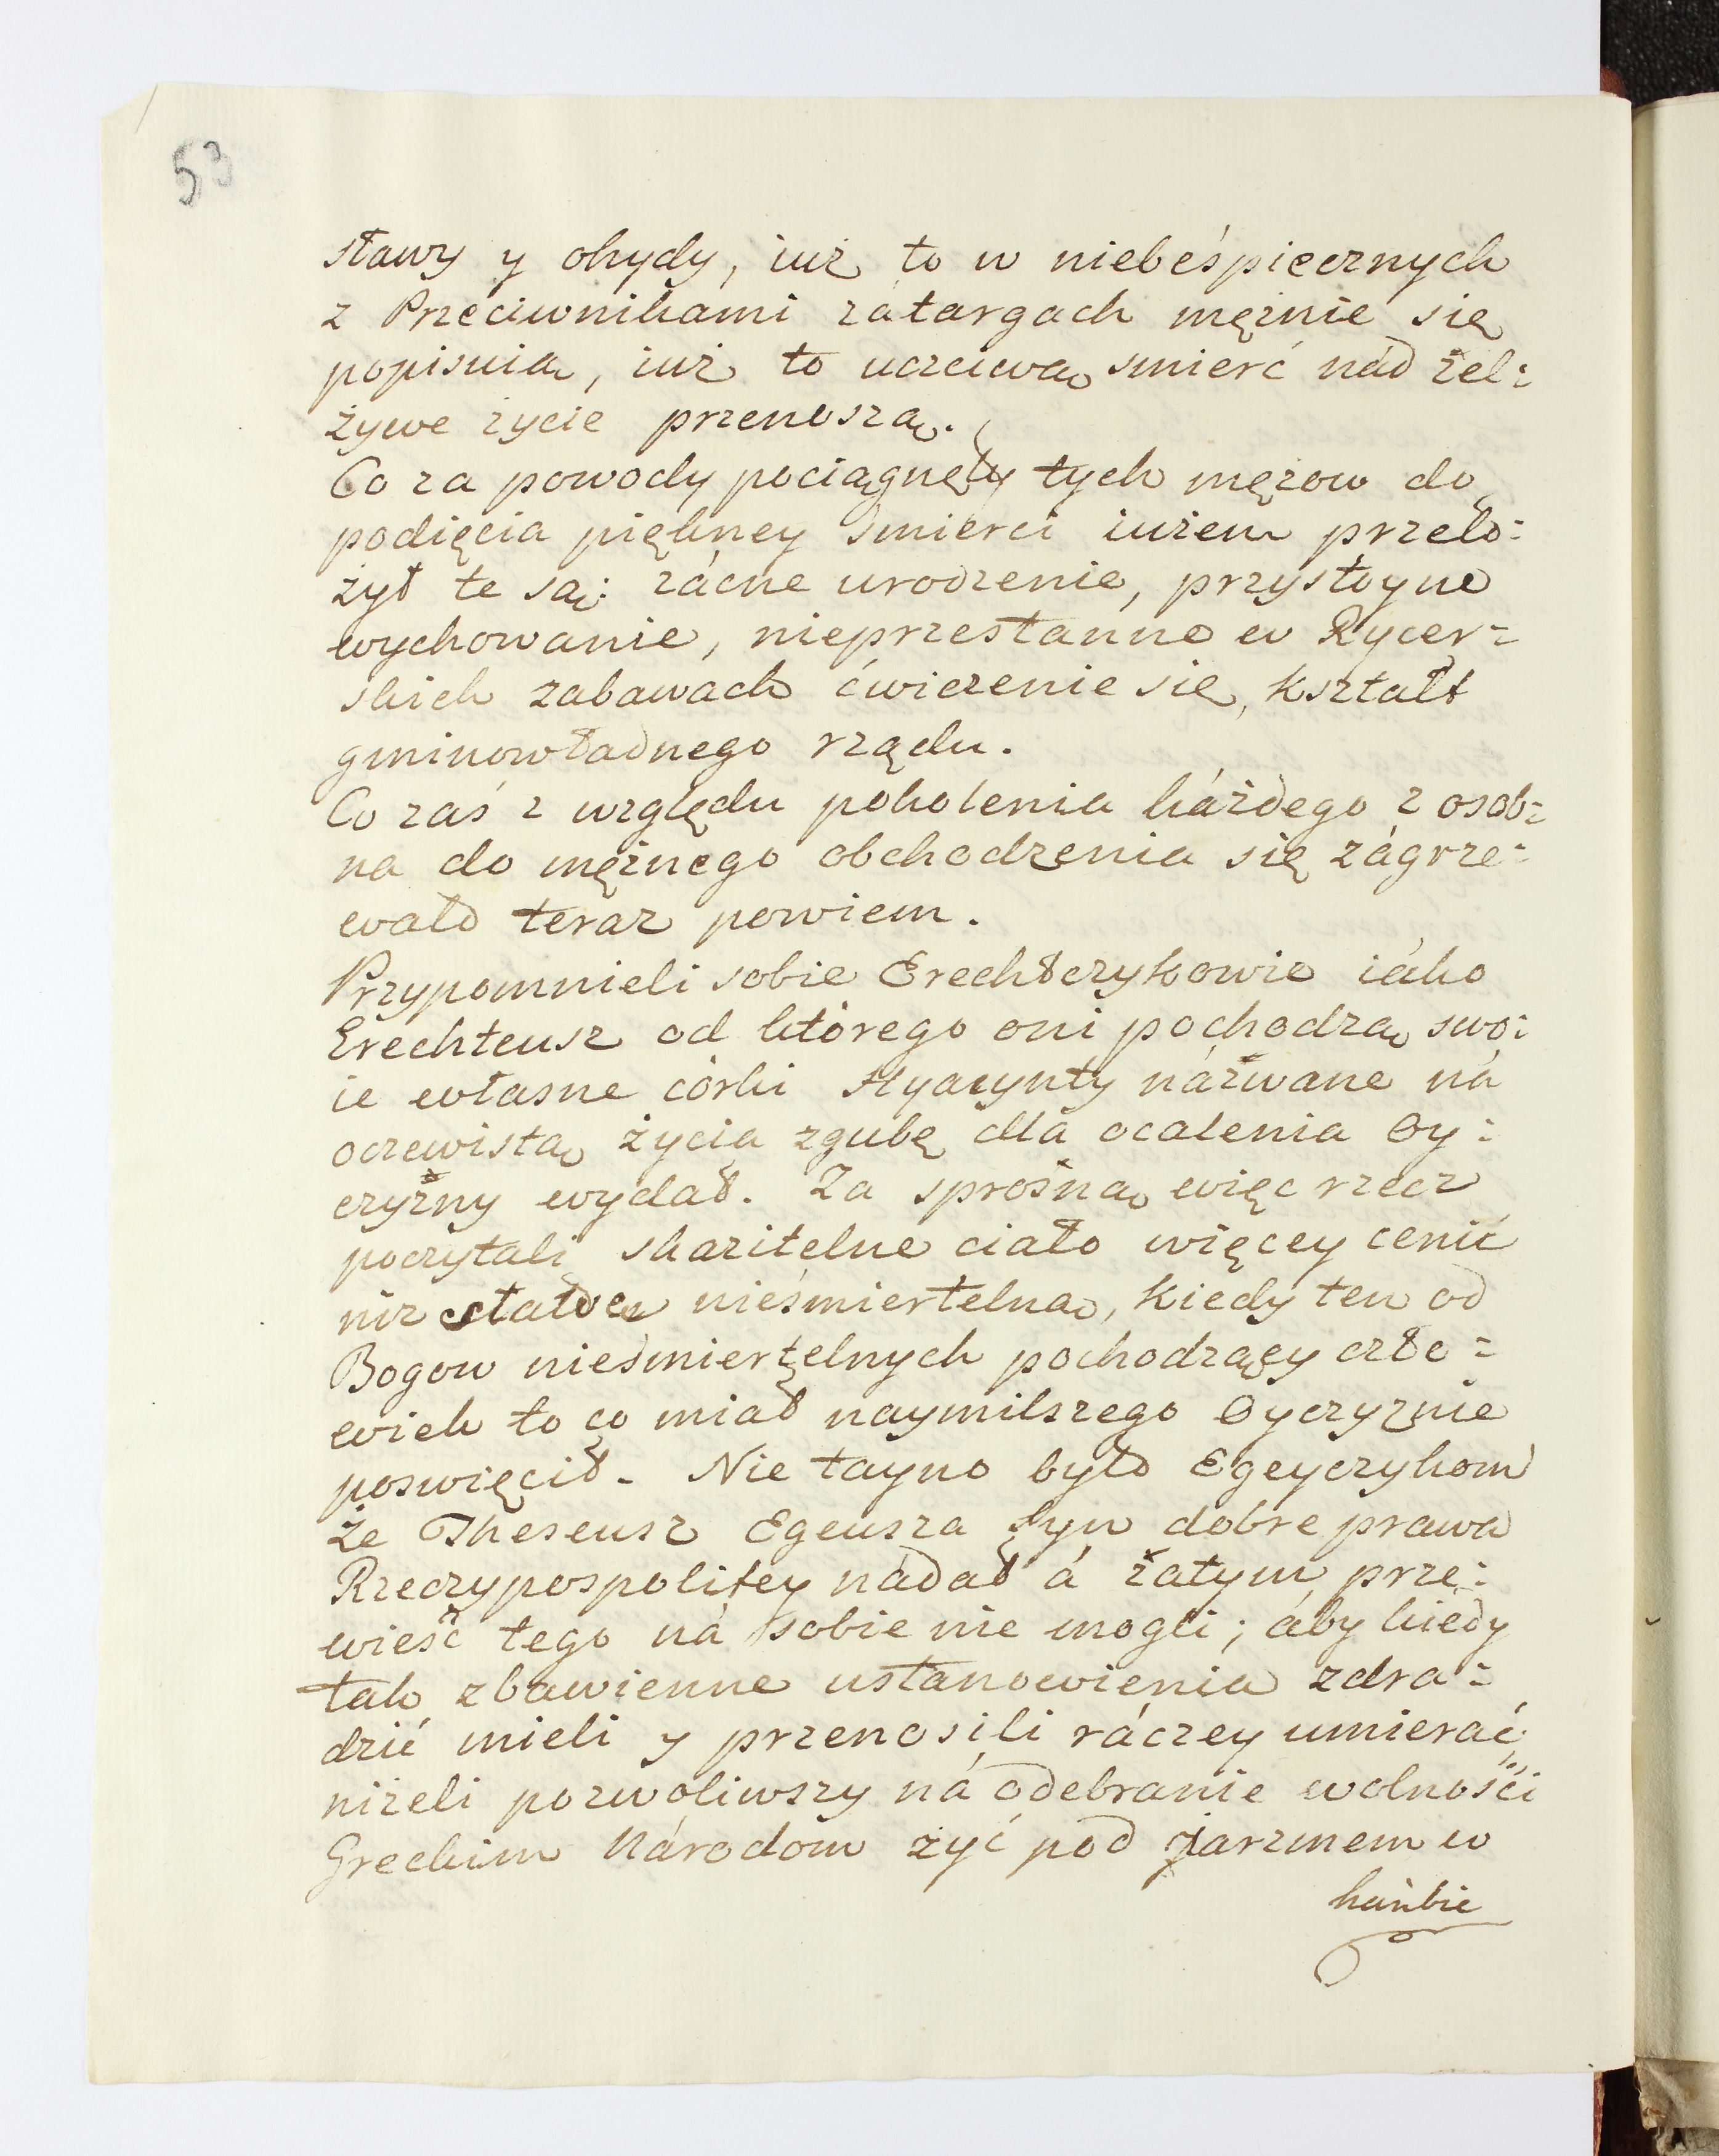 53
sławy y ohydy, iuż to w niebeśpiecznych
z Przeciwnikami zátargach mężnie się
popisuią, iuż to uczciwą smierć nád żel:
żywe życie przenoszą.
Co za powody pociągnęły tych mężow do
podięcia piękney smierci iużem przeło:
żył te są: zácne urodzenie, przystoyne
wychowanie, nieprzestanne w Rycer:
skich zabawach ćwiczenie się, kształt
gminowładnego rządu.
Co zaś z względu pokolenia każdego z osob:
na do mężnego obchodzenia się zágrze:
wało teraz powiem.
Przypomnieli sobie Erechtczykowie iáko
Erechteusz od ktorego oni pochodzą swo:
ie własne córki Hyacynty názwane ná
oczewistą życia zgubę dlá ocalenia Oy:
czyzny wydał. Za sprośną więc rzecz
poczytali skazitelne ciało więcey cenić
niż sławę nieśmiertelną, kiedy ten od
Bogow nieśmiertelnych pochodzący czło:
wiek to co miał naymilszego Oyczyznie
poswięcił. Nie tayno było Egeyczykom
że Theseusz Egeusza Syn dobre prawa
Rzeczypospolitey nádał á zatym prze:
wieść tego ná sobie nie mogli; áby kiedy
tak zbawienne ustanowienia zdra:
dzić mieli y przenosili ráczey umierać
niżeli pozwoliwszy ná odebranie wolności
Greckim Národom żyć pod jarzmem w
hańbie